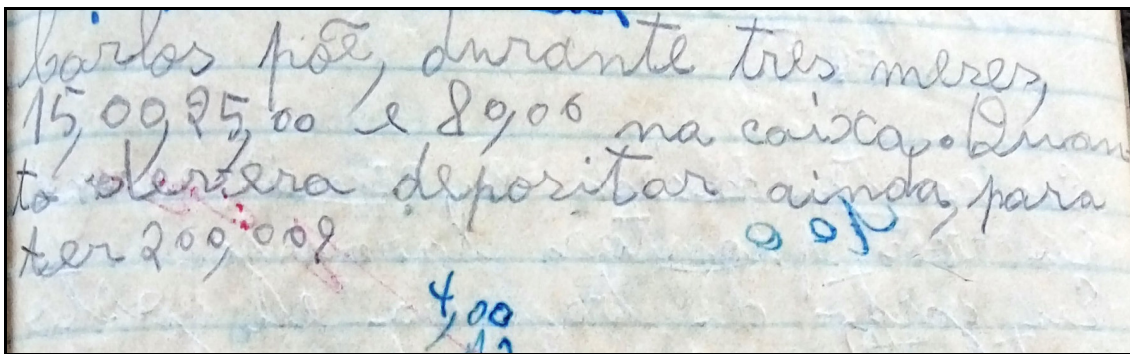 Carlos põe, durante três meses,
15,00, 25,00 e 80,00 na caixa. Quan
to deverá depositar ainda, para
ter 200,00?
4,00